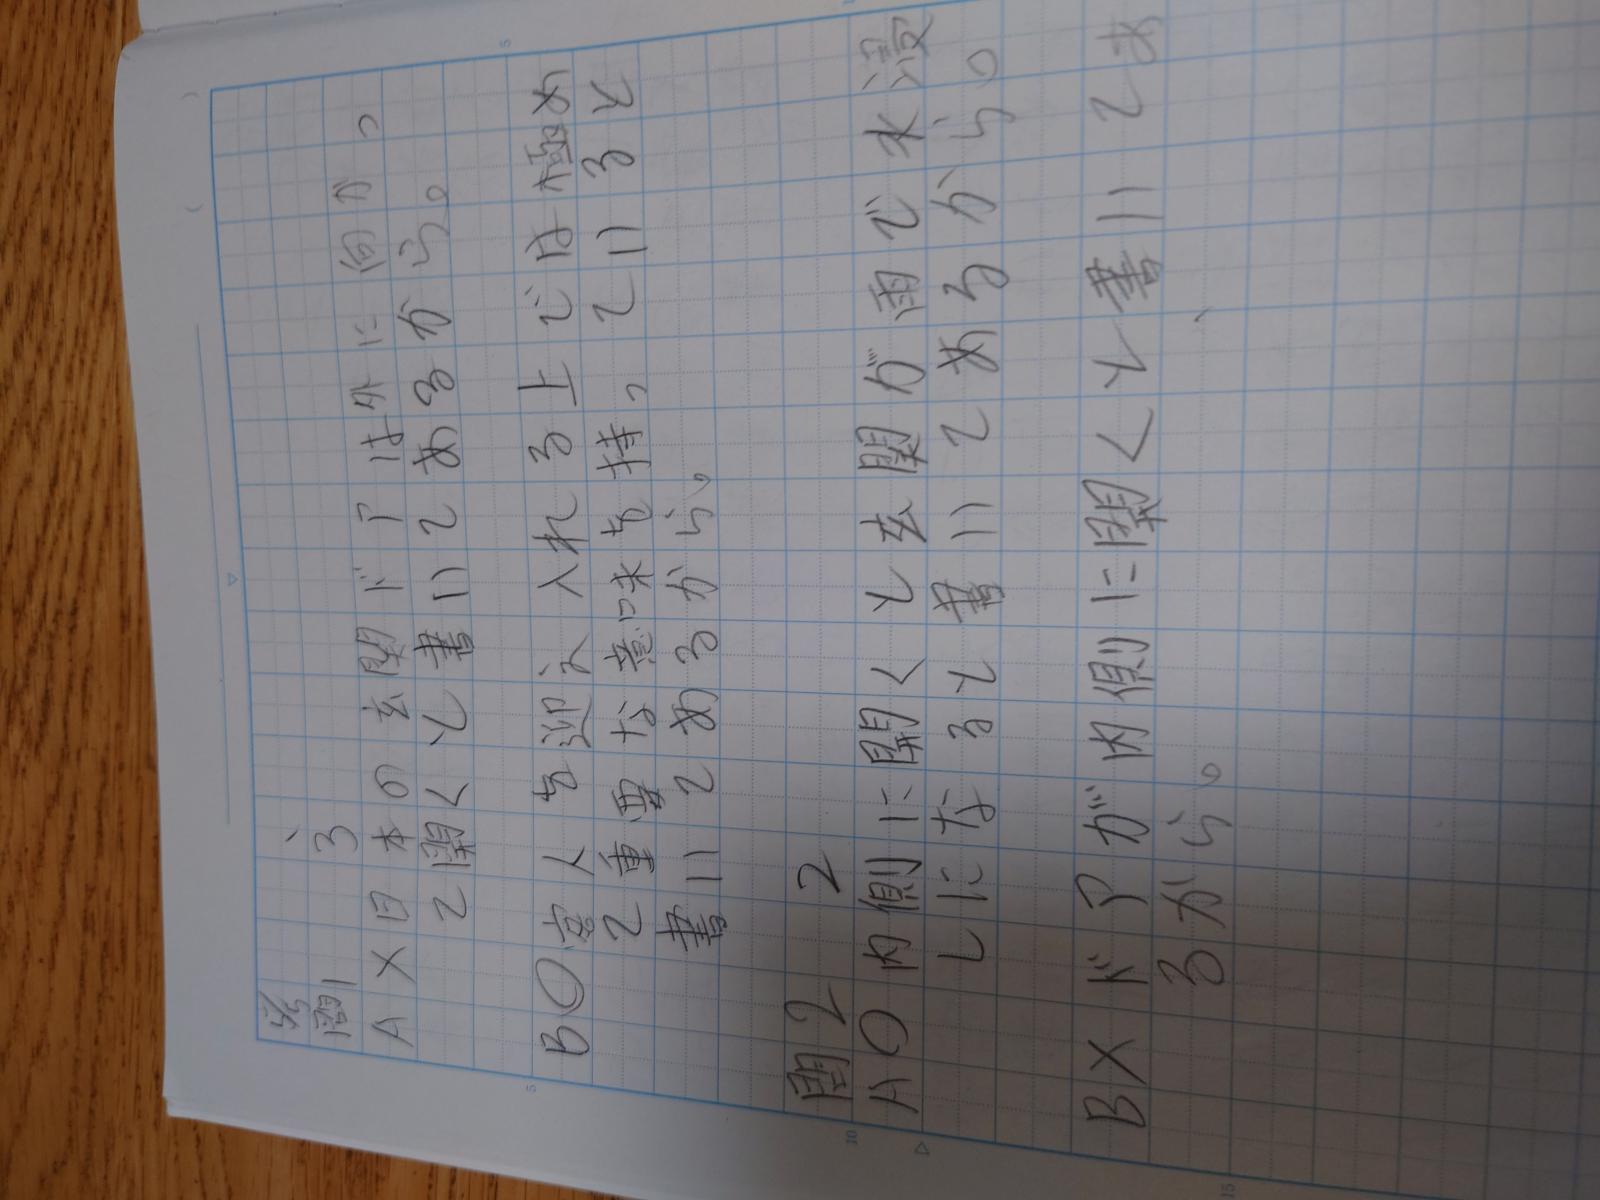 問1 3
A×日本の玄関ドアは外に向かっ
て開くと書いてあるから。
B○客人を迎え入れる上では極め
て重要な意味を持っていると
書いてあるから。
問2 2
A○内側に開くと玄関が雨で水浸
しになると書いてあるから。
B×ドアが内側に開くと書いてあ
るから。